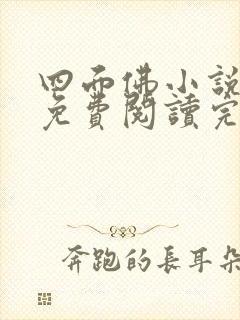 四面佛小說
免費閱讀完
奔跑的長耳朵